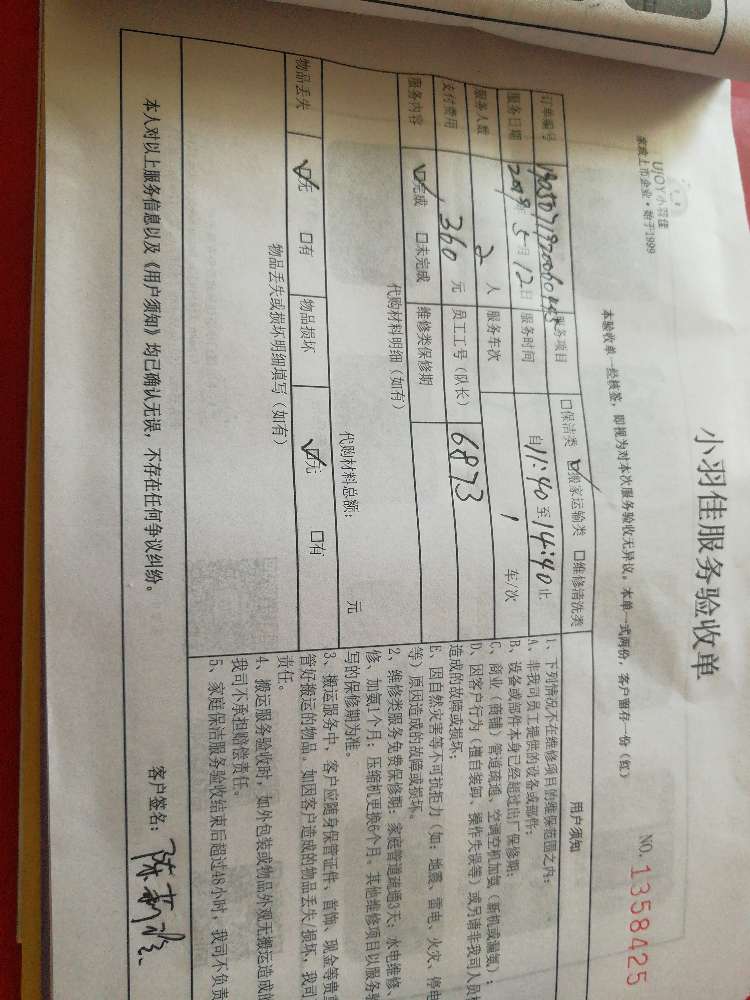 UJOY小羽佳
家政上市企业·始于1999
小羽佳服务验收单
NO. 1358425
本验收单一经核签，即视为对本次服务验收无异议。本单一式两份，客户留存一份（红）
订单编号 服务项目 □保洁类 ☑搬家运输类 □维修清洗类
服务日期 2019年5月12日 服务时间 自11:40至14:40止
服务人数 2人 服务车次 1 车/次
支付费用 360元 员工工号（队长） 6873
服务内容 ☑完成 □未完成 维修类保修期
代购材料明细（如有）
代购材料总额： 元
物品丢失 ☑无 □有 物品损坏 ☑无 □有
物品丢失或损坏明细填写（如有）
用户须知
1、下列情况不在维修项目的维保范围之内：
A、非我司员工提供的设备或部件；
B、设备或部件本身已经超过出厂保修期；
C、商业（商铺）管道疏通、空调充机加氨（新机或漏氨）；
D、因客户行为（擅自装卸、操作失误等）或另请非我司人员
造成的故障或损坏；
E、因自然灾害等不可抗拒力（如：地震、雷电、火灾、停电
等）原因造成的故障或损坏。
2、维修类服务免费保修期：家庭管道疏通3天；水电维修、
修、加氨1个月；压缩机更换6个月。其他维修项目以服务
写的保修期为准。
3、搬运服务中，客户应随身保管证件、首饰、现金等贵
管好搬运的物品。如因客户造成的物品丢失/损坏，我司
责任。
4、搬运服务验收时，如外包装或物品外观无搬运造成的
我司不承担赔偿责任。
5、家庭保洁服务验收结束后超过48小时，我司不负责
本人对以上服务信息以及《用户须知》均已确认无误，不存在任何争议纠纷。
客户签名：